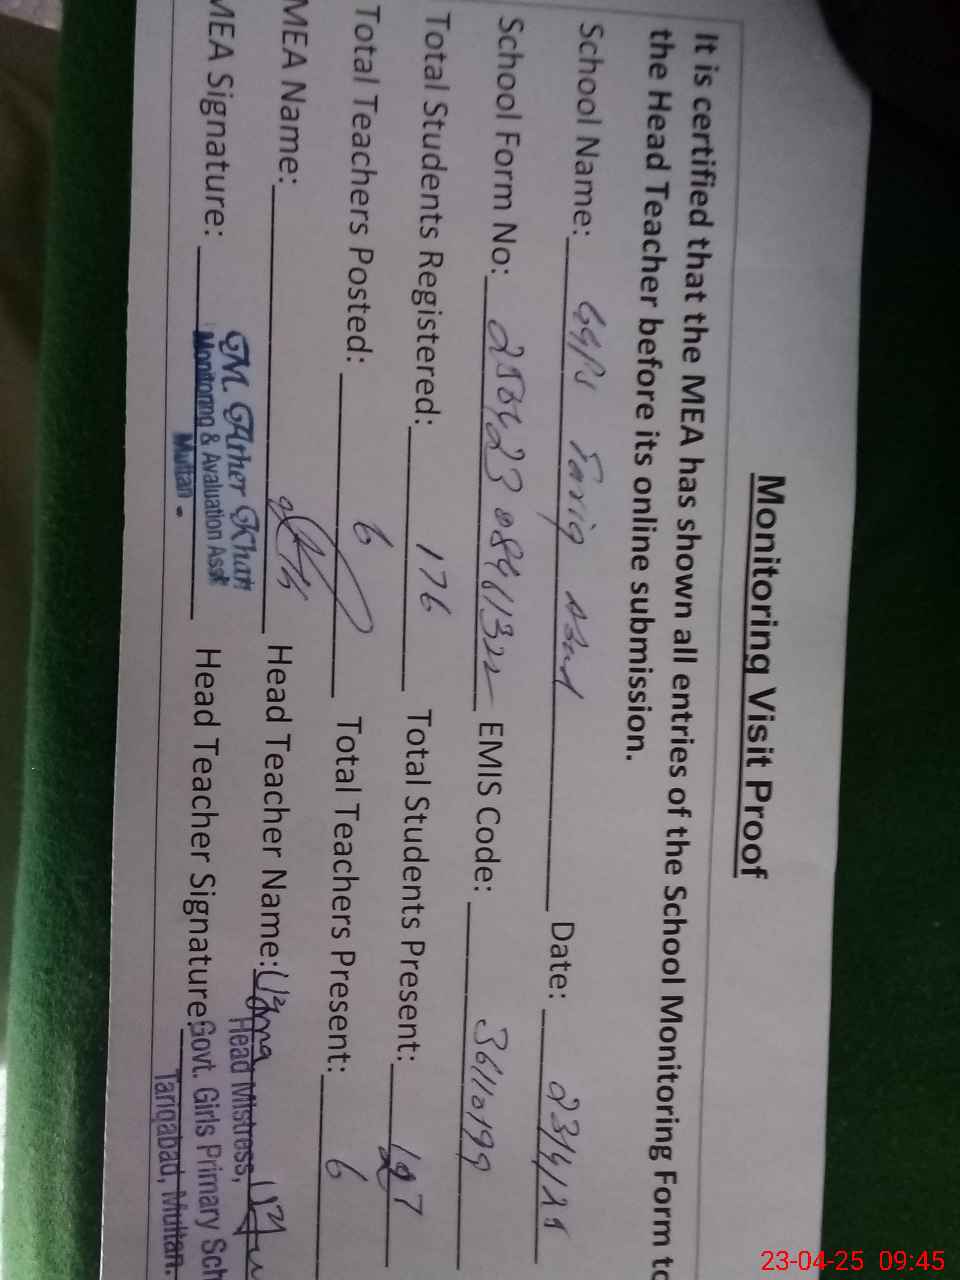 Monitoring Visit Proof
It is certified that the MEA has shown all entries of the School Monitoring Form to
the Head Teacher before its online submission.
School Name: GGPS Tariq Abad Date: 23/4/25
School Form No: EMIS Code: 36110199
Total Students Registered: 176 Total Students Present:
Total Teachers Posted: 6 Total Teachers Present: 6
MEA Name: Head Teacher Name:
MEA Signature: Head Teacher Signature
M. Ather Khan
Monitoring & Avaluation Asst
Multan.
Head Mistress,
Govt. Girls Primary Sch
Tariqabad, Multan.
23-04-25 09:45